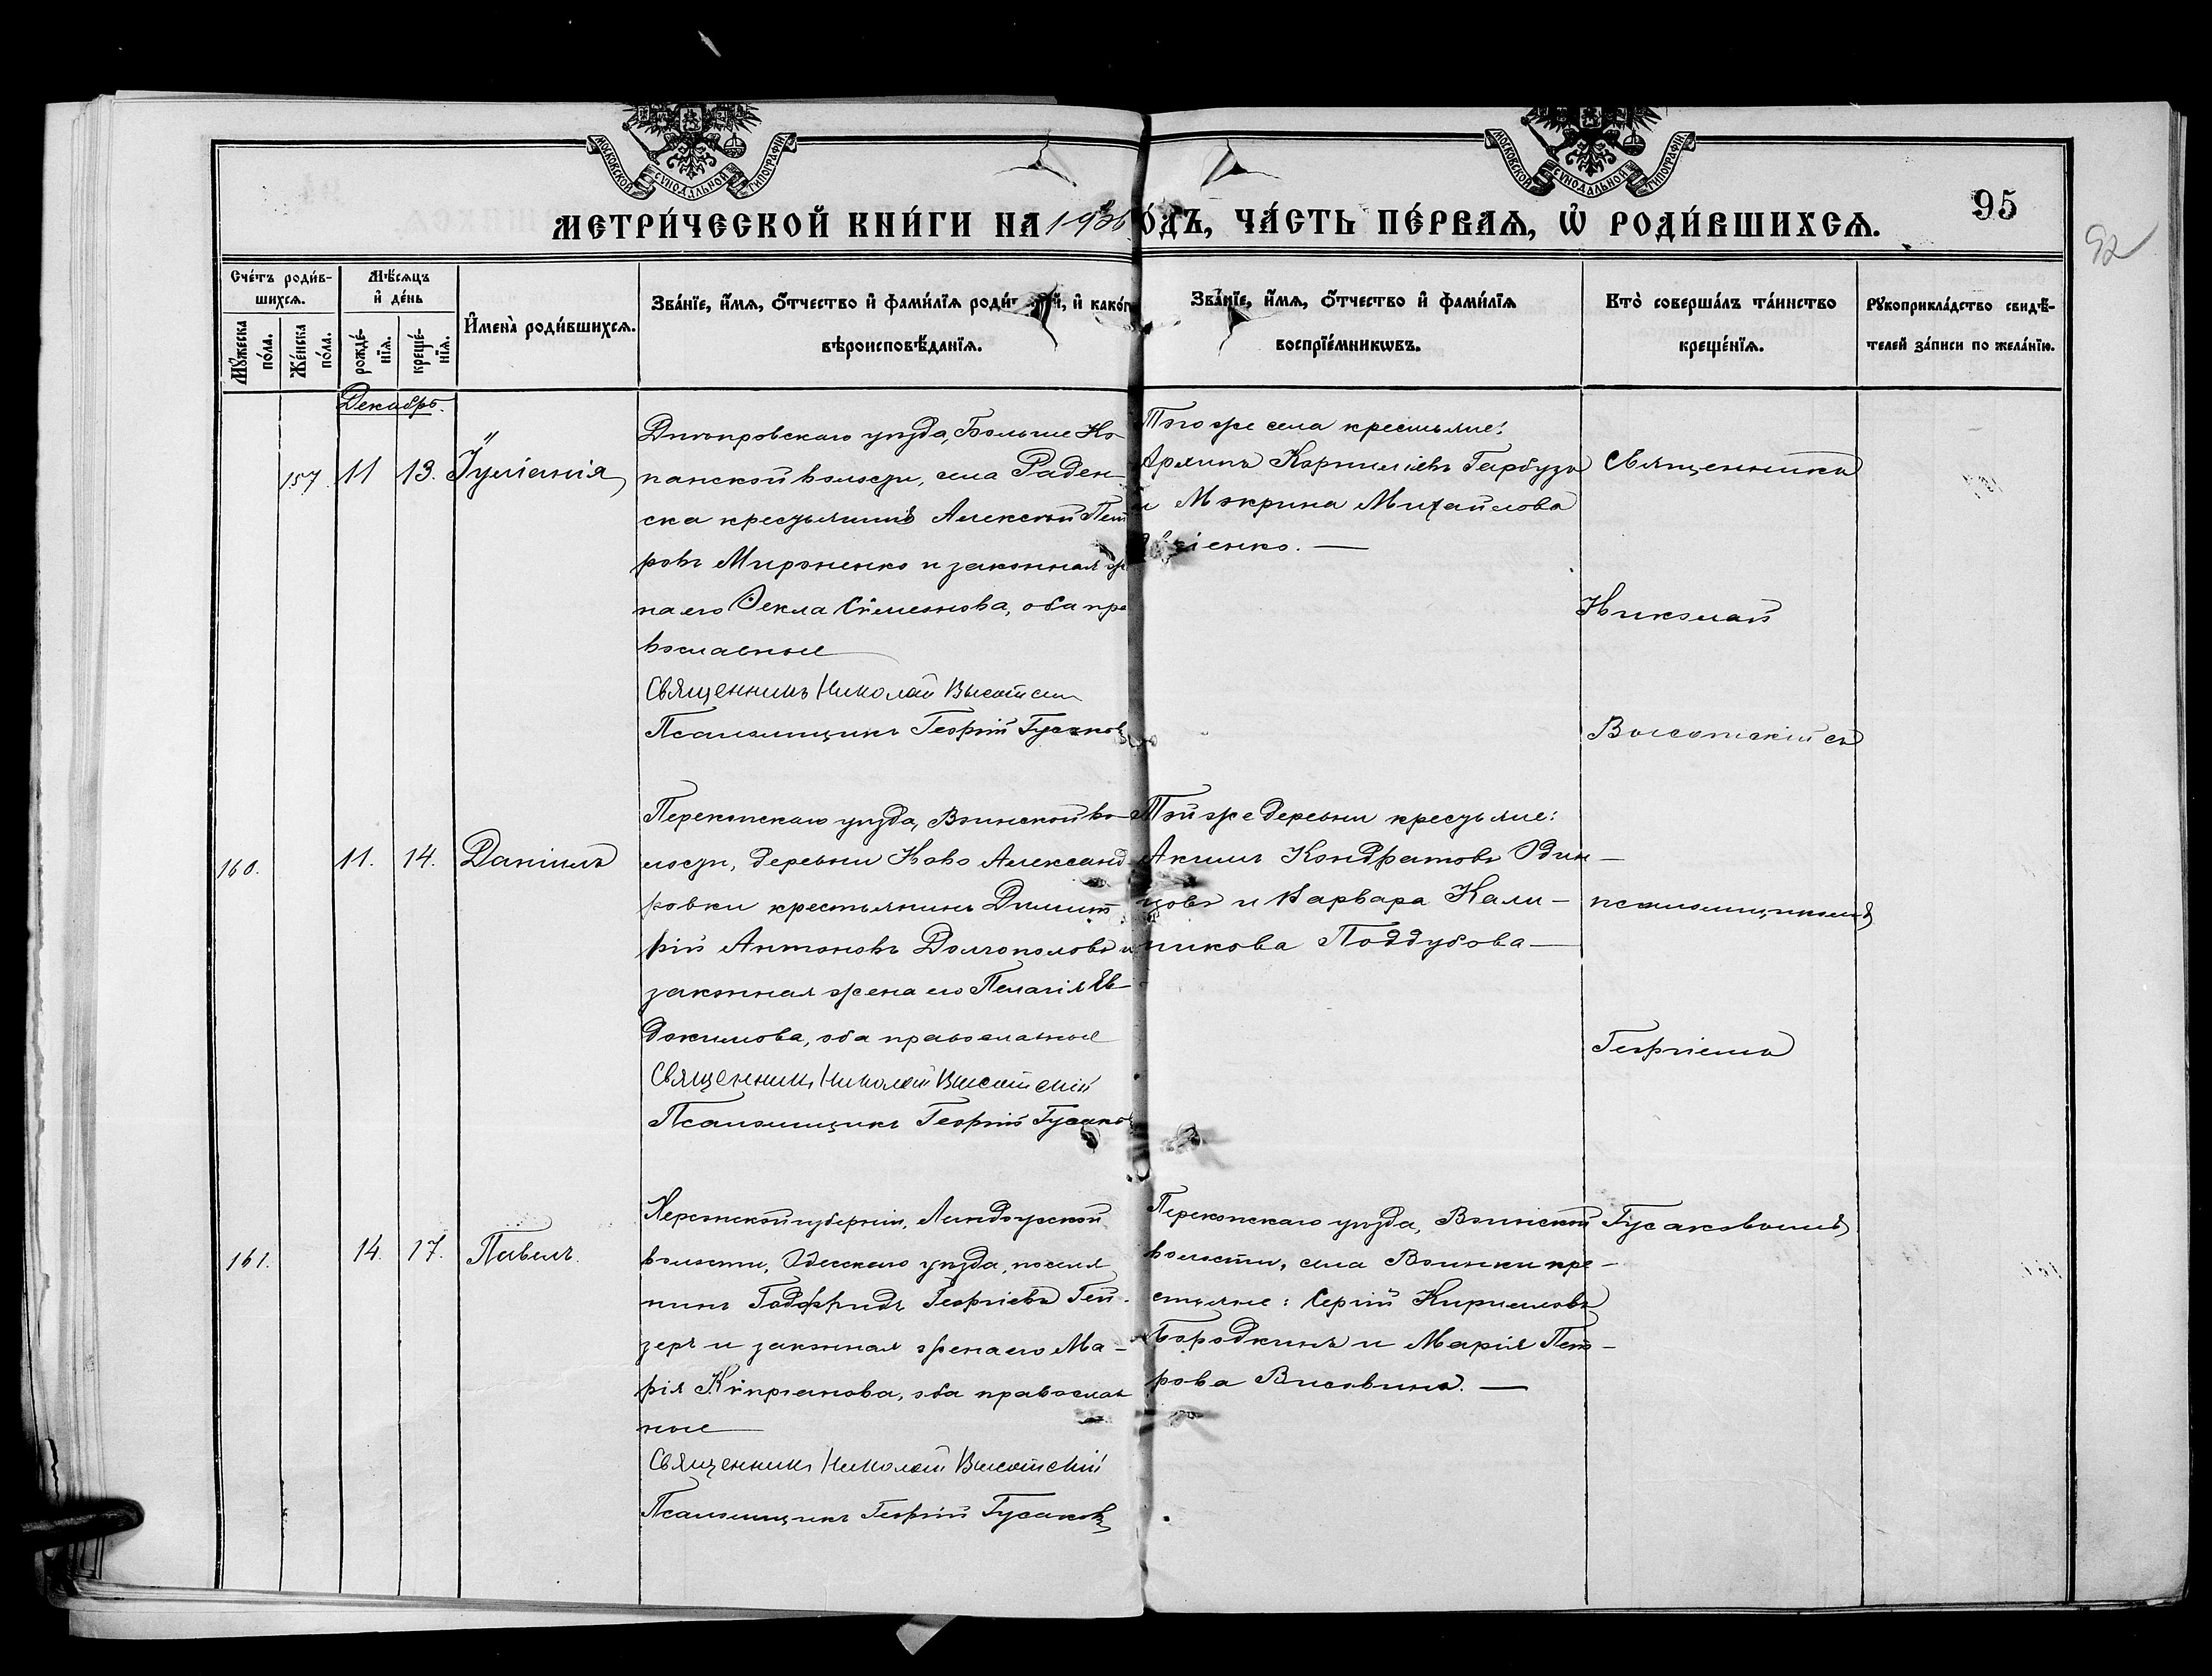 МОСКОВСКОЙ СѴНОДАЛЬНОЙ ТИПОГРАФІИ
МОСКОВСКОЙ СѴНОДАЛЬНОЙ ТИПОГРАФІИ
95
92
МЕТРИ́ЧЕСКОЙ КНИ́ГИ НА ОДЪ, ЧА́СТЬ ПЕ́РВАѦ, Ѡ РОДИ́ВШИХСѦ.
Сче́тъ роди́в-
шихсѧ.
Мѣ́сѧцъ
и де́нь
Мꙋ́жеска
по́ла.
Же́нска
по́ла.
рожде́-
нїѧ.
креще́-
нїѧ.
И́мена̀ роди́вшихсѧ.
Зва́нїе, и́мѧ, ѻ́тчество и фами́лїѧ роди и како́г
вѣроисповѣ́данїѧ.
Зва́нїе, и́мѧ, ѻ́тчество и фами́лїѧ
воспрїе́мникѡвъ.
Кто̀ соверша́лъ та́инство
креще́нїѧ.
Рꙋкоприкла́дство свидѣ́-
телей за́писи по жела́нїю.
Декабрь.
157 11 13. Іуліанія
Днѣпровскаго уѣзда, Больше Ко-
панской волости, села Раден-
ска крестьянинъ Алексѣй Пет
ровъ Мироненко и законная же
на его Ѳекла Сѵмеонова, оба пра
вославные
Священникъ Николай Высотскій
Псаломщикъ Георгій Гусаковъ
Того же села крестьяне:
Корниліевъ Гарбузъ
и Макрина Михайлова
Священникъ
Николай
Высотскій съ
160. 11. 14. Даніилъ
Перекопскаго уѣзда, Воинской во-
лости, деревни Ново Александ
ровки крестьянинъ Димит
рій Антоновъ Долгополовъ и
законная жена его Пелагія Ев-
докимова, оба православные
Священникъ Николай Высотскій
Псаломщикъ Георгій Гусаковъ
Той же деревни крестьяне:
Акимъ Кондратовъ Один-
цовъ и Варвара Кали-
никова Поддубова
псаломщикомъ
Георгіемъ
161. 14. 17. Павелъ.
Херсонской губерніи,
волости, Одесскаго уѣзда, поселя
нинъ Годфридъ Георгіевъ Гей-
зеръ и законная жена его Ма-
рія Кѵпріанова, оба православ
ные
Священникъ Николай Высотскій
Псаломщикъ Георгій Гусаковъ
Перекопскаго уѣзда, Воинской
волости, села Воинки кре-
стьяне: Сергій Кирилловъ
Бородкинъ и Марія Пет-
рова
Гусаковымъ